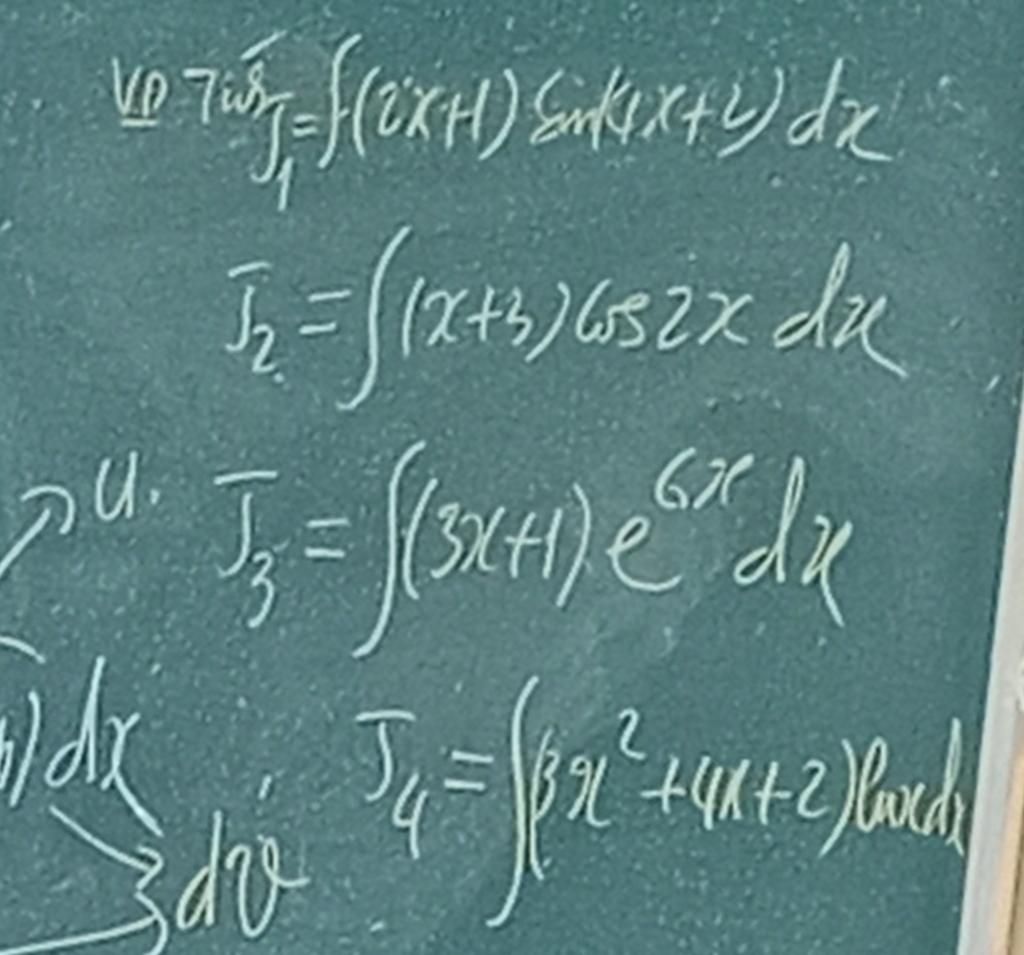 VD Tính J₁ = ∫(2x+1) sin(4x+2) dx
J₂ = ∫(x+3) cos2x dx
u. J₃ = ∫(3x+1) e^{6x} dx
dx J₄ = ∫(3x² + 4x + 2) lnx dx
dv